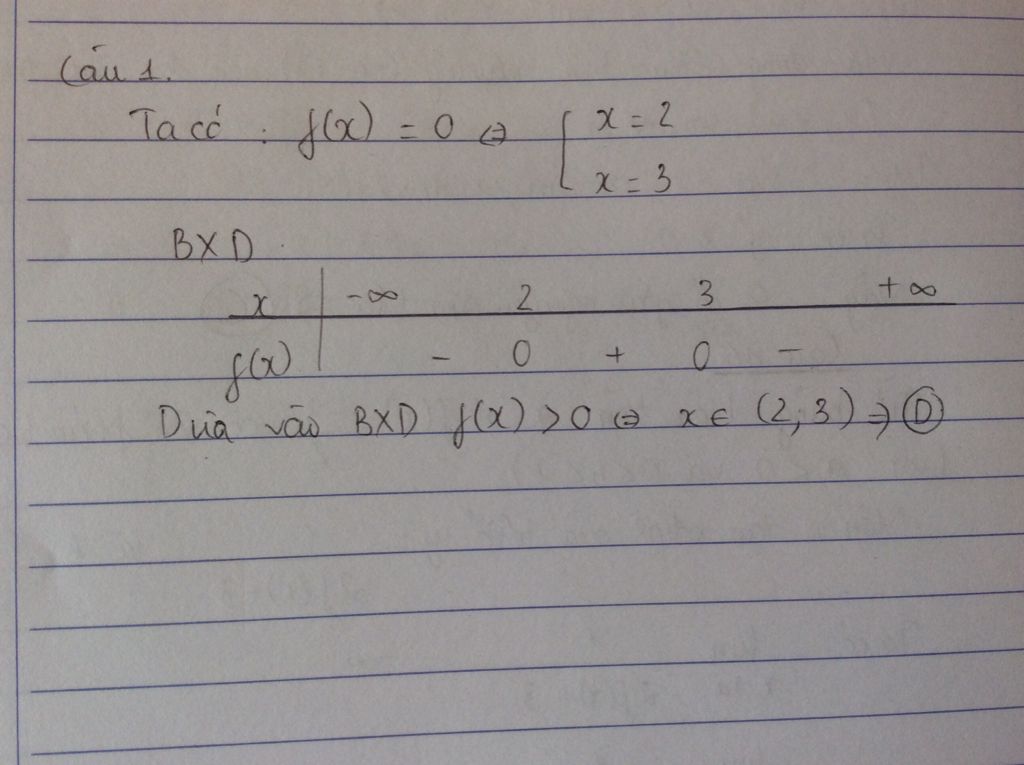 Câu 1.
Ta có : f(x) = 0 ⇔ [ x = 2
x = 3
BXD
x | -∞ 2 3 +∞
f(x) | - 0 + 0 -
Dựa vào BXD f(x) > 0 ⇔ x ∈ (2, 3) ⇒ D